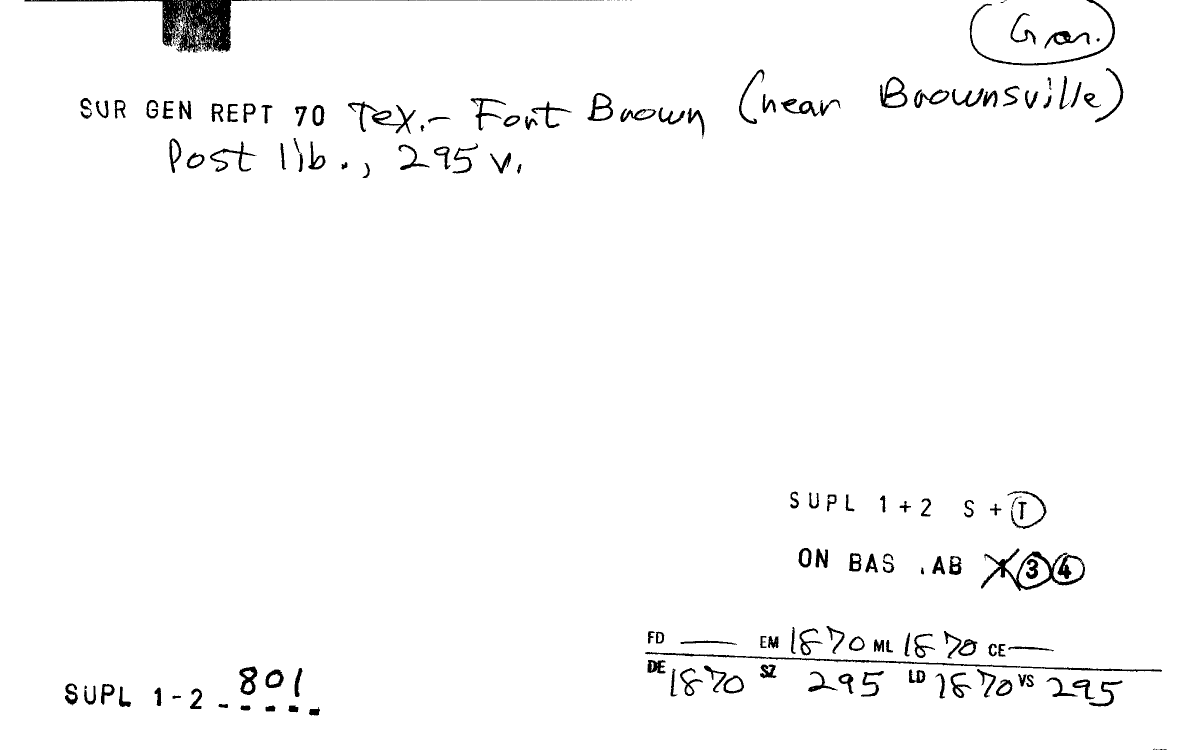 Gar.
SUR GEN REPT 70 Tex.- Fort Brown (near Brownsville)
Post lib., 295 v.
SUPL 1+2 S+T
ON BAS .AB 3 4
FD — EM 1870 ML 1870 CE —
DE 1870 SZ 295 LD 1870 VS 295
SUPL 1-2 801